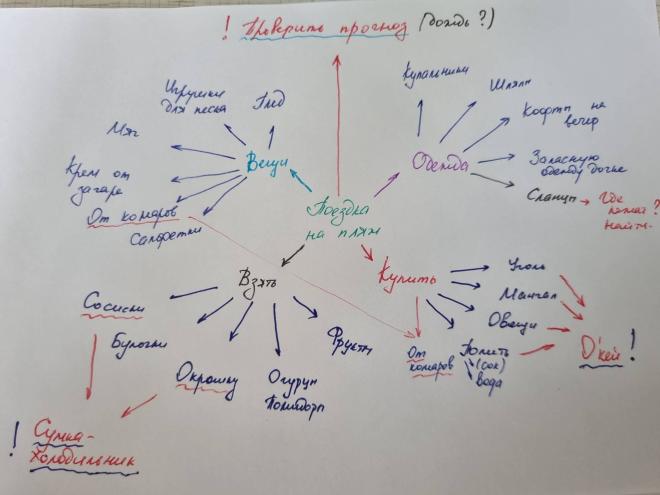 ! Проверить прогноз (дождь?)
Купальники
Шляпы
Кофты на
вечер
Запасную
одежду дочке
Сланцы → Где
найти?
Одежда
Игрушки
для песка
Плед
Мяч
Крем от
загара
От комаров
Салфетки
Вещи
Поездка
на пляж
Взять
Сосиски
Булочки
Окрошку
Огурцы
Помидоры
Фрукты
! Сумка-
холодильник
Купить
Уголь
Мангал
Овощи
Попить
(сок)
Вода
От
комаров
О'кей!